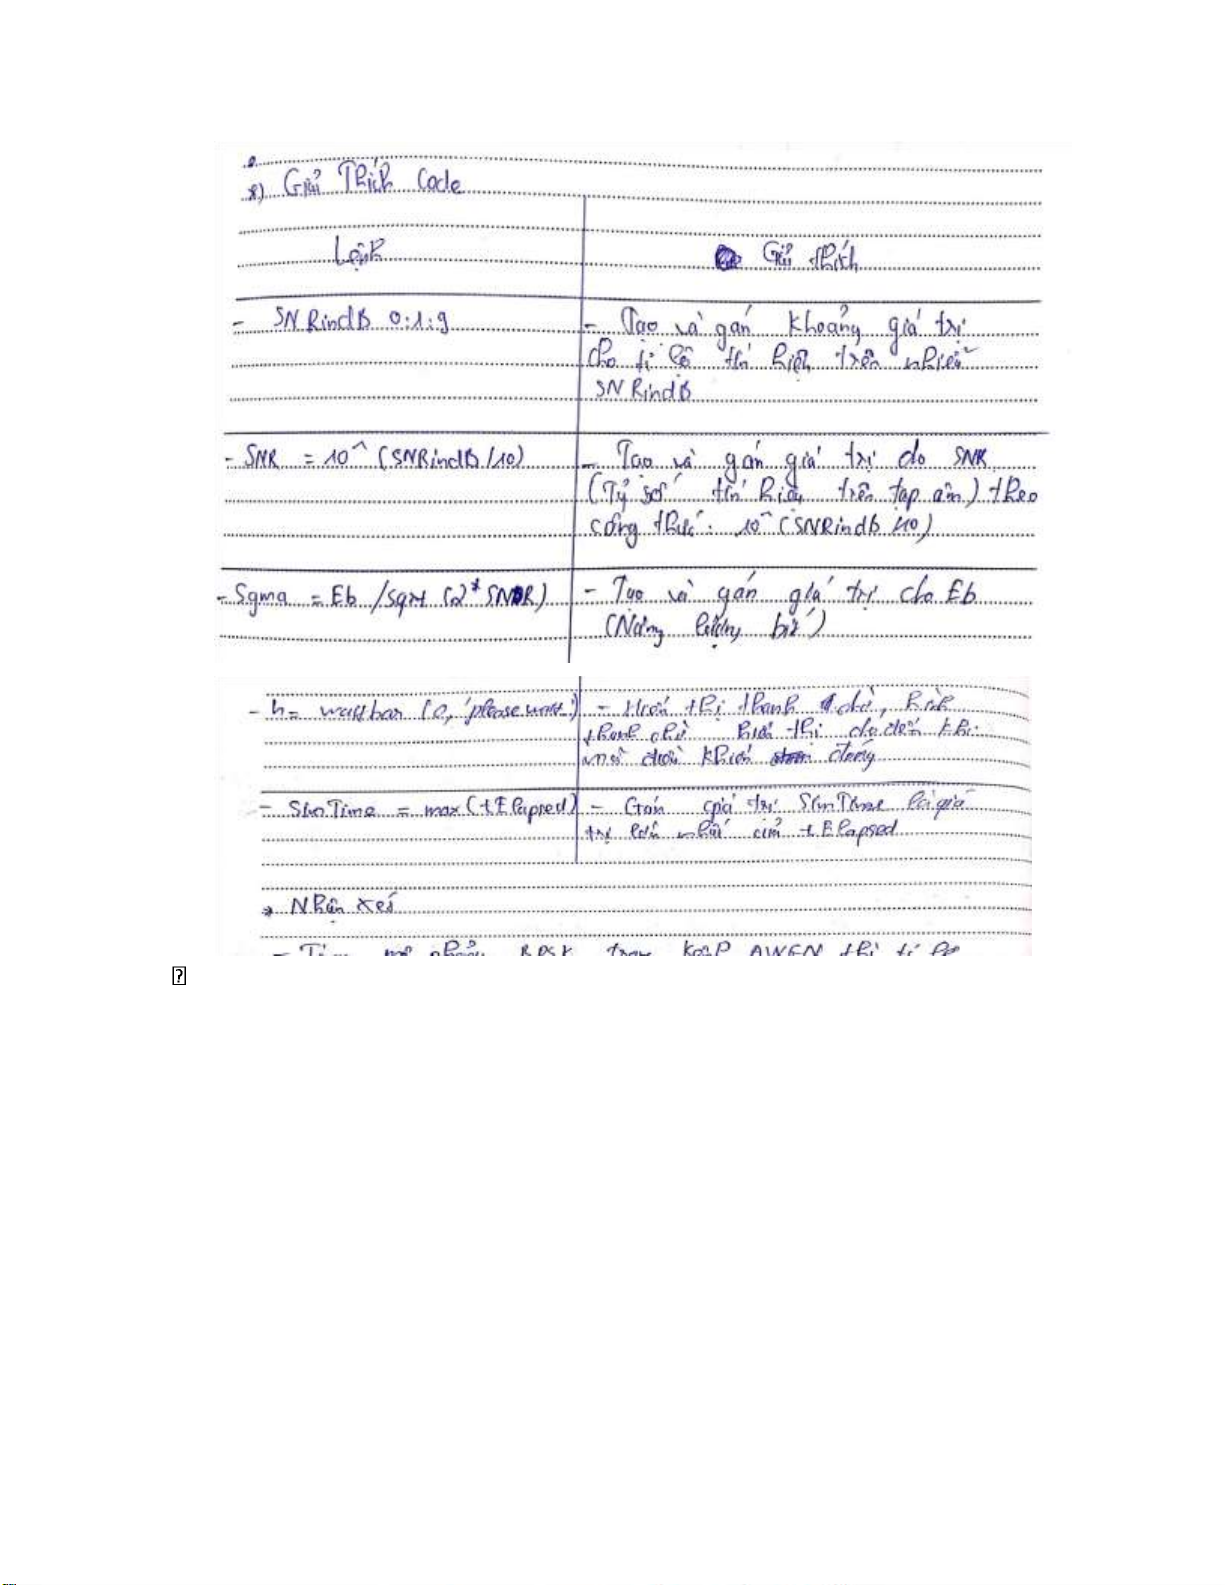 *) Giải Thích Code
Lệnh
Giải thích
- SNRindB 0:1:9
- Tạo và gán khoảng giá trị
cho tỉ lệ tín hiệu trên nhiễu
SNRindB
- SNR = 10^(SNRindB/10)
- Tạo và gán giá trị do SNR
(Tỷ số tín hiệu trên tạp âm) theo
công thức: 10^(SNRindB/10)
- Sgma = Eb/sqrt(2*SNR)
- Tạo và gán giá trị cho Eb
(Năng lượng bit)
- h= waitbar(0,'please wait')
- Hiển thị thanh chờ, hình
thanh chờ hiển thị cho đến khi
mã điều khiển đóng
- SimTime = max(tElapsed)
- Gán giá trị SimTime là giá
trị lớn nhất của tElapsed
→ Nhận xét
- mô phỏng BPSK trong kênh AWGN thì tỉ lệ